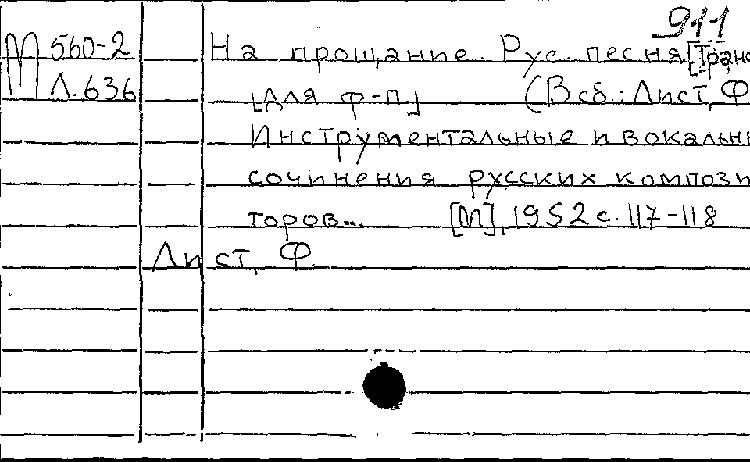 911
М 560-2 На прощание. Рус. песня [Транс
Л.636 [для ф-п.] (В сб.: Лист, Ф
Инструментальные и вокальны
сочинения русских компози
торов... [М], 1952 с. 117-118
Лист, Ф.